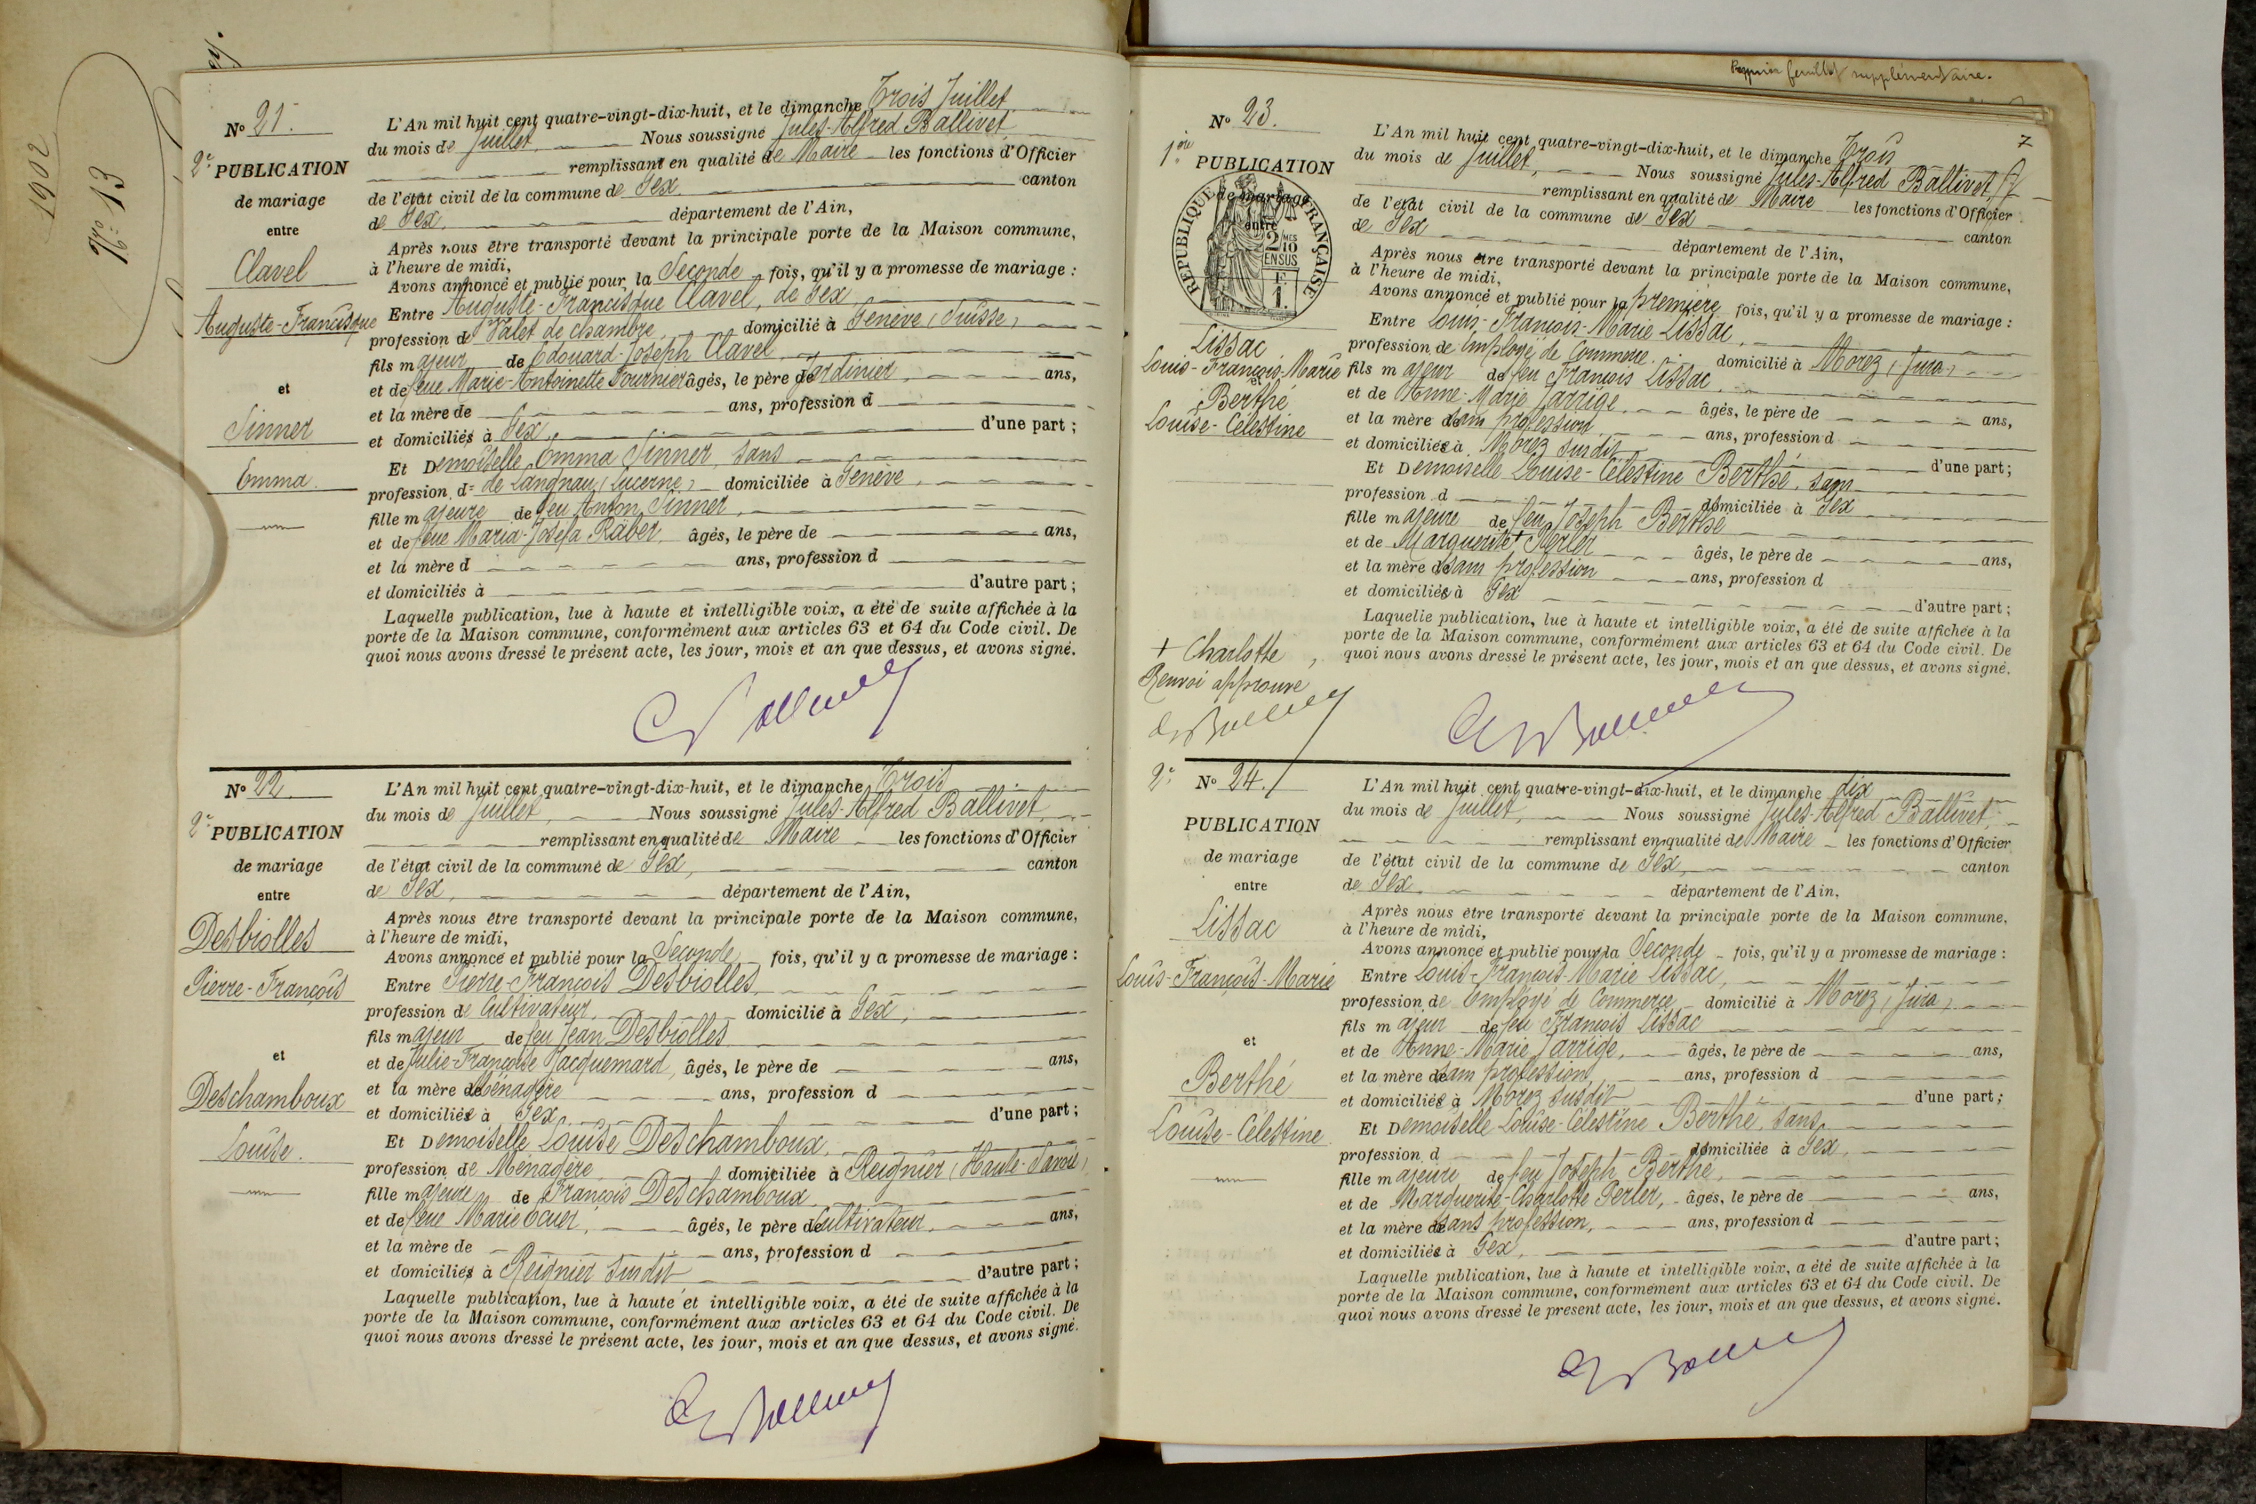 1902
N° 13
N° 21.
2e PUBLICATION
de mariage
entre
Clavel
Auguste-Francisque
et
Sinner
Emma
L'An mil huit cent quatre-vingt-dix-huit, et le dimanche Trois Juillet
du mois de Juillet, Nous soussigné Jules-Alfred Ballivet
remplissant en qualité de Maire les fonctions d'Officier
de l'état civil de la commune de Gex canton
de Gex, département de l'Ain,
Après nous être transporté devant la principale porte de la Maison commune,
à l'heure de midi,
Avons annoncé et publié pour la Seconde fois, qu'il y a promesse de mariage :
Entre Auguste-Francisque Clavel, de Gex,
profession de Valet de chambre, domicilié à Genève (Suisse)
fils majeur de Edouard-Joseph Clavel
et de feue Marie-Antoinette Fournier âgés, le père de Jardinier, ans,
et la mère de ans, profession d
et domiciliés à Gex, d'une part ;
Et Demoiselle Emma Sinner, sans
profession, d= de Langnau (Lucerne) domiciliée à Genève,
fille majeure de feu Anton Sinner,
et de feue Maria-Josefa Räber, âgés, le père de ans,
et la mère d ans, profession d
et domiciliés à d'autre part ;
Laquelle publication, lue à haute et intelligible voix, a été de suite affichée à la
porte de la Maison commune, conformément aux articles 63 et 64 du Code civil. De
quoi nous avons dressé le présent acte, les jour, mois et an que dessus, et avons signé.
N° 22
2e PUBLICATION
de mariage
entre
Desbiolles
Pierre-François
et
Deschamboux
Louise.
L'An mil huit cent quatre-vingt-dix-huit, et le dimanche Trois
du mois de Juillet, Nous soussigné Jules-Alfred Ballivet,
remplissant en qualité de Maire les fonctions d'Officier
de l'état civil de la commune de Gex, canton
de Gex, département de l'Ain,
Après nous être transporté devant la principale porte de la Maison commune,
à l'heure de midi,
Avons annoncé et publié pour la Seconde fois, qu'il y a promesse de mariage :
Entre Pierre-François Desbiolles,
profession de Cultivateur, domicilié à Gex,
fils majeur de feu Jean Desbiolles
et de Julie-Françoise Jacquemard, âgés, le père de ans,
et la mère de Ménagère ans, profession d
et domiciliés à Gex, d'une part ;
Et Demoiselle Louise Deschamboux,
profession de Ménagère domiciliée à Reignier (Haute-Savoie)
fille majeure de François Deschamboux
et de feue Marie âgés, le père de Cultivateur, ans,
et la mère de ans, profession d
et domiciliés à Reignier susdit d'autre part ;
Laquelle publication, lue à haute et intelligible voix, a été de suite affichée à la
porte de la Maison commune, conformément aux articles 63 et 64 du Code civil. De
quoi nous avons dressé le présent acte, les jour, mois et an que dessus, et avons signé.
feuillet supplémentaire.
7
N° 23.
1ère PUBLICATION
de mariage
entre
RÉPUBLIQUE FRANÇAISE
2 MES 10
EN SUS
E
1.
Lissac
Louis-François-Marie
et
Berthé
Louise-Célestine
+ Charlotte
Renvoi approuvé
L'An mil huit cent quatre-vingt-dix-huit, et le dimanche Trois
du mois de Juillet, Nous soussigné Jules-Alfred Ballivet,
remplissant en qualité de Maire les fonctions d'Officier
de l'état civil de la commune de Gex canton
de Gex département de l'Ain,
Après nous être transporté devant la principale porte de la Maison commune,
à l'heure de midi,
Avons annoncé et publié pour la première fois, qu'il y a promesse de mariage :
Entre Louis-François-Marie Lissac,
profession de Employé de Commerce. domicilié à Morez (Jura)
fils majeur de feu François Lissac,
et de Anne-Marie Jarrige, âgés, le père de ans,
et la mère de sans profession, ans, profession d
et domiciliés à Morez susdit d'une part ;
Et Demoiselle Louise-Célestine Berthé, sans
profession d domiciliée à Gex
fille majeure de feu Joseph Berthé
et de Marguerite + Perler âgés, le père de ans,
et la mère de sans profession ans, profession d
et domiciliés à Gex d'autre part ;
Laquelle publication, lue à haute et intelligible voix, a été de suite affichée à la
porte de la Maison commune, conformément aux articles 63 et 64 du Code civil. De
quoi nous avons dressé le présent acte, les jour, mois et an que dessus, et avons signé.
2e N° 24.
PUBLICATION
de mariage
entre
Lissac
Louis-François-Marie
et
Berthé
Louise-Célestine
L'An mil huit cent quatre-vingt-dix-huit, et le dimanche dix
du mois de Juillet, Nous soussigné Jules-Alfred Ballivet,
remplissant en qualité de Maire les fonctions d'Officier
de l'état civil de la commune de Gex, canton
de Gex, département de l'Ain,
Après nous être transporté devant la principale porte de la Maison commune,
à l'heure de midi,
Avons annoncé et publié pour la Seconde fois, qu'il y a promesse de mariage :
Entre Louis-François-Marie Lissac,
profession de Employé de Commerce domicilié à Morez (Jura)
fils majeur de feu François Lissac
et de Anne-Marie Jarrige, âgés, le père de ans,
et la mère de sans profession, ans, profession d
et domiciliés à Morez susdit d'une part ;
Et Demoiselle Louise-Célestine Berthé, sans
profession d domiciliée à Gex,
fille majeure de feu Joseph Berthé,
et de Marguerite-Charlotte Perler, âgés, le père de ans,
et la mère de sans profession, ans, profession d
et domiciliés à Gex, d'autre part ;
Laquelle publication, lue à haute et intelligible voix, a été de suite affichée à la
porte de la Maison commune, conformément aux articles 63 et 64 du Code civil. De
quoi nous avons dressé le présent acte, les jour, mois et an que dessus, et avons signé.